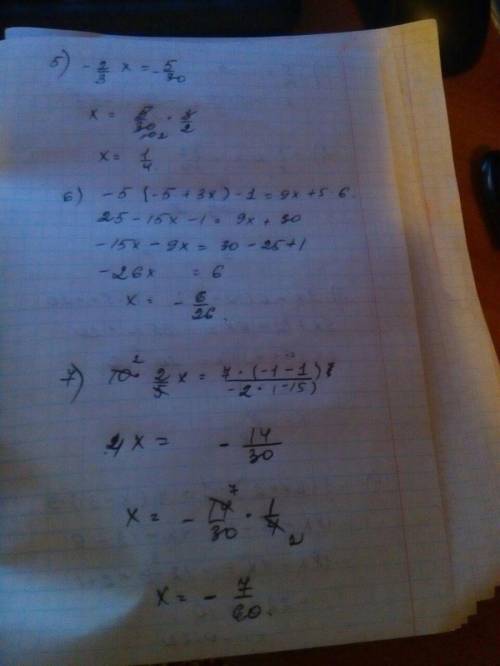 5) - 2/3 x = - 5/30
x = 5/30 · 3/2
x = 1/4
6) -5 (-5 + 3x) - 1 = 9x + 5·6.
25 - 15x - 1 = 9x + 30
-15x - 9x = 30 - 25 + 1
-26x = 6
x = - 6/26.
7) 10² · 2/5 x = 7 · (-1 - 1) / -2 · (-15)
4x = - 14/30
x = - 14⁷/30 · 1/4₂
x = - 7/60.